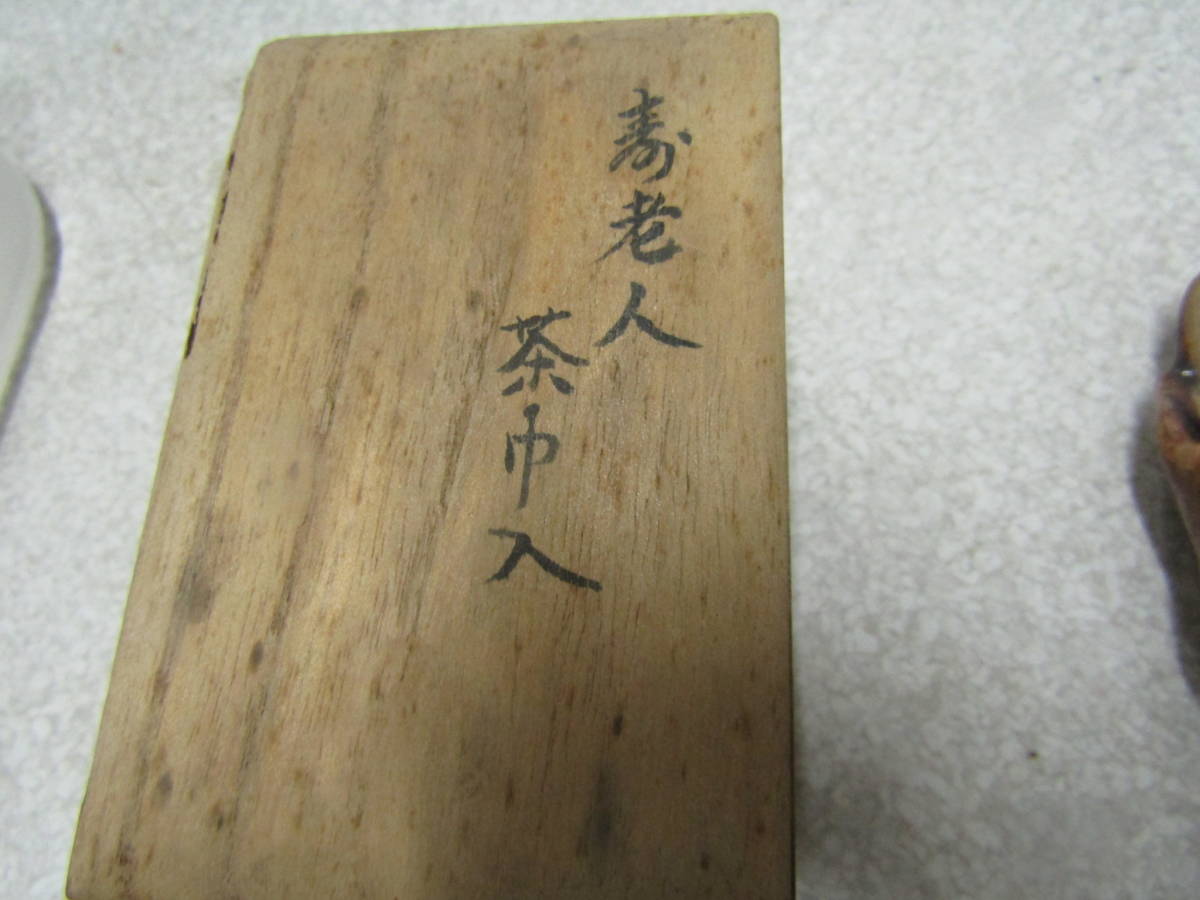 寿老人
茶巾入